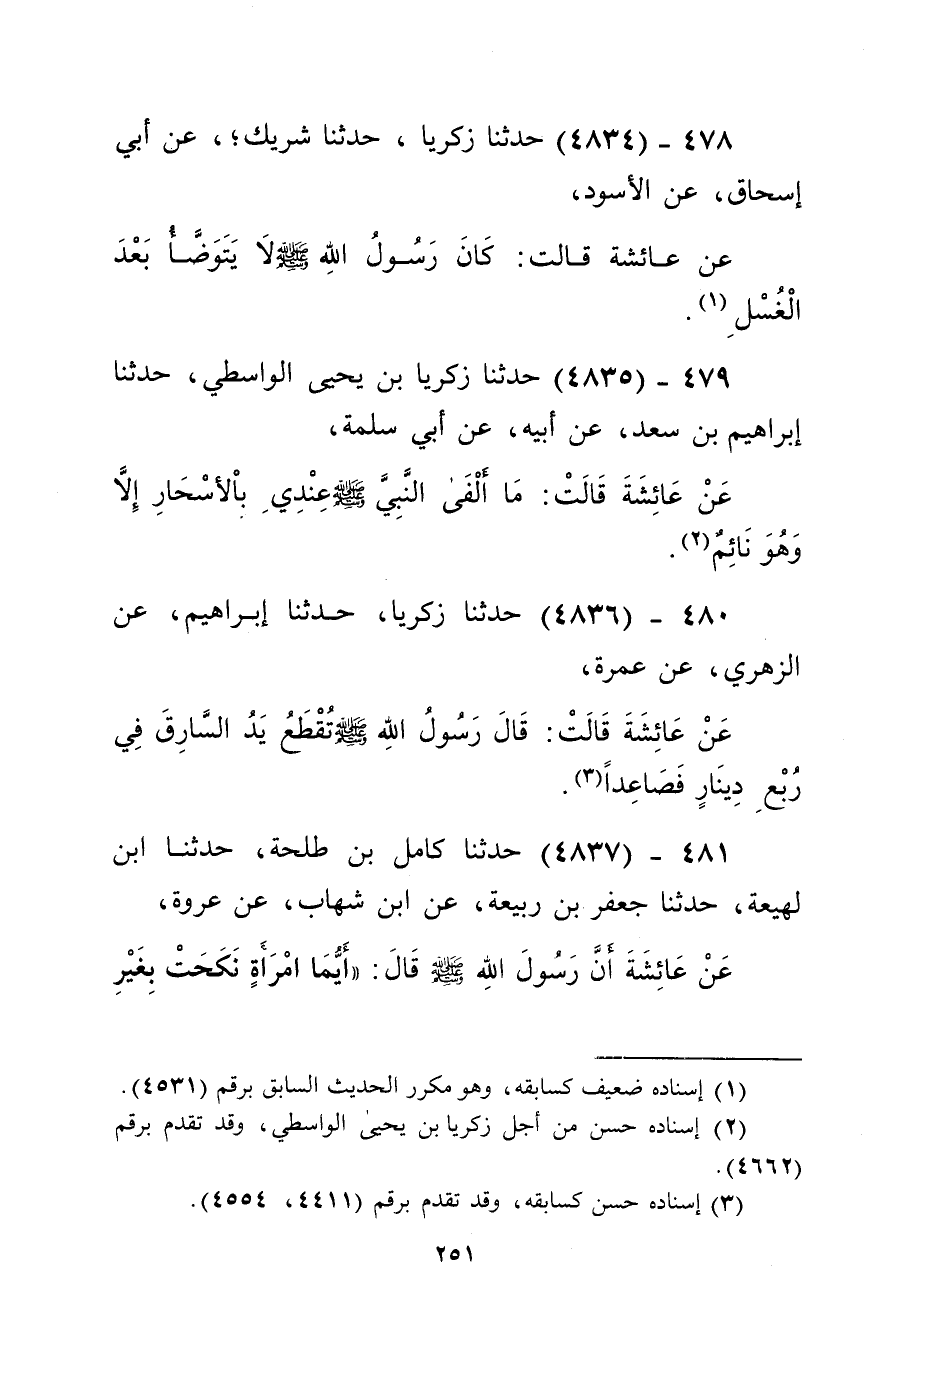 ٤٧٨ - (٤٨٣٤) حدثنا زكريا ، حدثنا شريك؛، عن أبي
إسحاق، عن الأسود،
عن عـائشة قـالت: كَانَ رَسُـولُ اللهِ ﷺلَا يَتَوَضَّـأُ بَعْدَ
الْغُسْلِ(١).
٤٧٩ - (٤٨٣٥) حدثنا زكريا بن يحيى الواسطي، حدثنا
إبراهيم بن سعد، عن أبيه، عن أبي سلمة،
عَنْ عَائِشَةَ قَالَتْ: مَا أَلْفَىٰ النَّبِيَّ ﷺعِنْدِي بِاْلأسْحَارِ إِلَّا
وَهُوَ نَائِمٌ(٢).
٤٨٠ - (٤٨٣٦) حدثنا زكريا، حـدثنا إبـراهيم، عن
الزهري، عن عمرة،
عَنْ عَائِشَةَ قَالَتْ: قَالَ رَسُولُ اللهِ ﷺتُقْطَعُ يَدُ السَّارِقَ فِي
رُبْعِ دِينَارٍ فَصَاعِداً(٣).
٤٨١ - (٤٨٣٧) حدثنا كامل بن طلحة، حدثنـا ابن
لهيعة، حدثنا جعفر بن ربيعة، عن ابن شهاب، عن عروة،
عَنْ عَائِشَةَ أَنَّ رَسُولَ اللهِ ﷺ قَالَ: «أَيُّمَا امْرَأَةٍ نَكَحَتْ بِغَيْرِ
(١) إسناده ضعيف كسابقه، وهو مكرر الحديث السابق برقم (٤٥٣١).
(٢) إسناده حسن من أجل زكريا بن يحيىٰ الواسطي، وقد تقدم برقم
(٤٦٦٢).
(٣) إسناده حسن كسابقه، وقد تقدم برقم (٤٤١١، ٤٥٥٤).
٢٥١